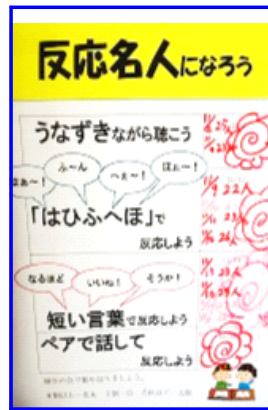 反応名人になろう
うなずきながら聴こう
ふ〜ん
へぇ〜!
ほぉ〜!
はぁ〜!
「はひふへほ」で
反応しよう
なるほど
いいね!
そうか!
短い言葉で反応しよう
ペアで話して
反応しよう